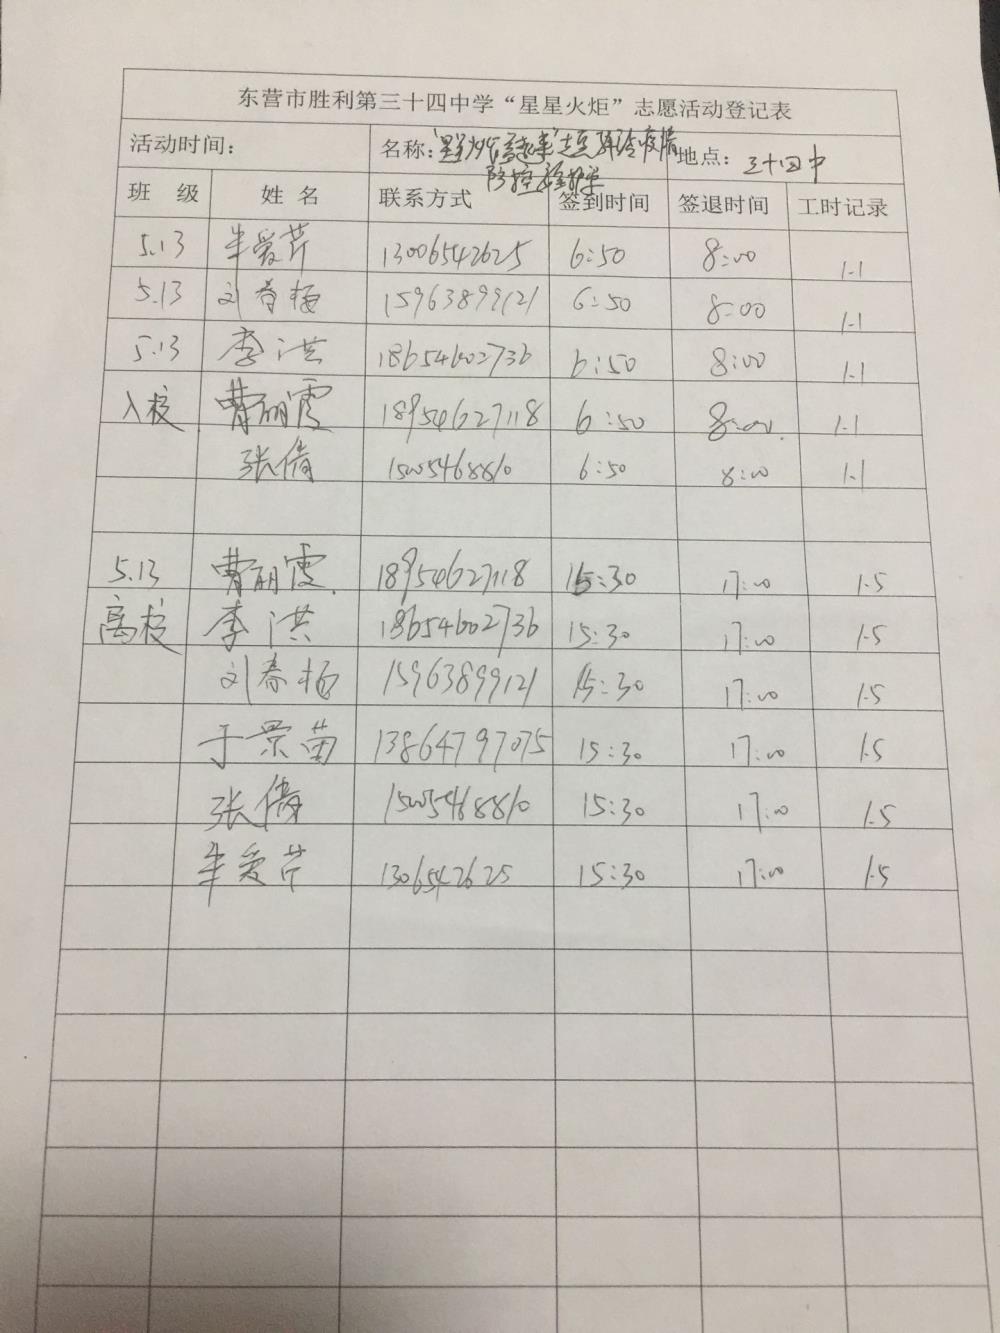 东营市胜利第三十四中学“星星火炬”志愿活动登记表
活动时间： 名称： 疫情 地点：三十四中
防控
班 级 姓 名 联系方式 签到时间 签退时间 工时记录
5.13 牟爱芹 13006542625 6:50 8:00 1.1
5.13 刘春梅 15963899121 6:50 8:00 1.1
5.13 李洪 18654602736 6:50 8:00 1.1
入校 曹丽霞 18954627118 6:50 8:00 1.1
张倩 15005468810 6:50 8:00 1.1
5.13 曹丽霞 18954627118 15:30 17:00 1.5
离校 李洪 18654602736 15:30 17:00 1.5
刘春梅 15963899121 15:30 17:00 1.5
于景苗 13864797075 15:30 17:00 1.5
张倩 15005468810 15:30 17:00 1.5
牟爱芹 1306542625 15:30 17:00 1.5